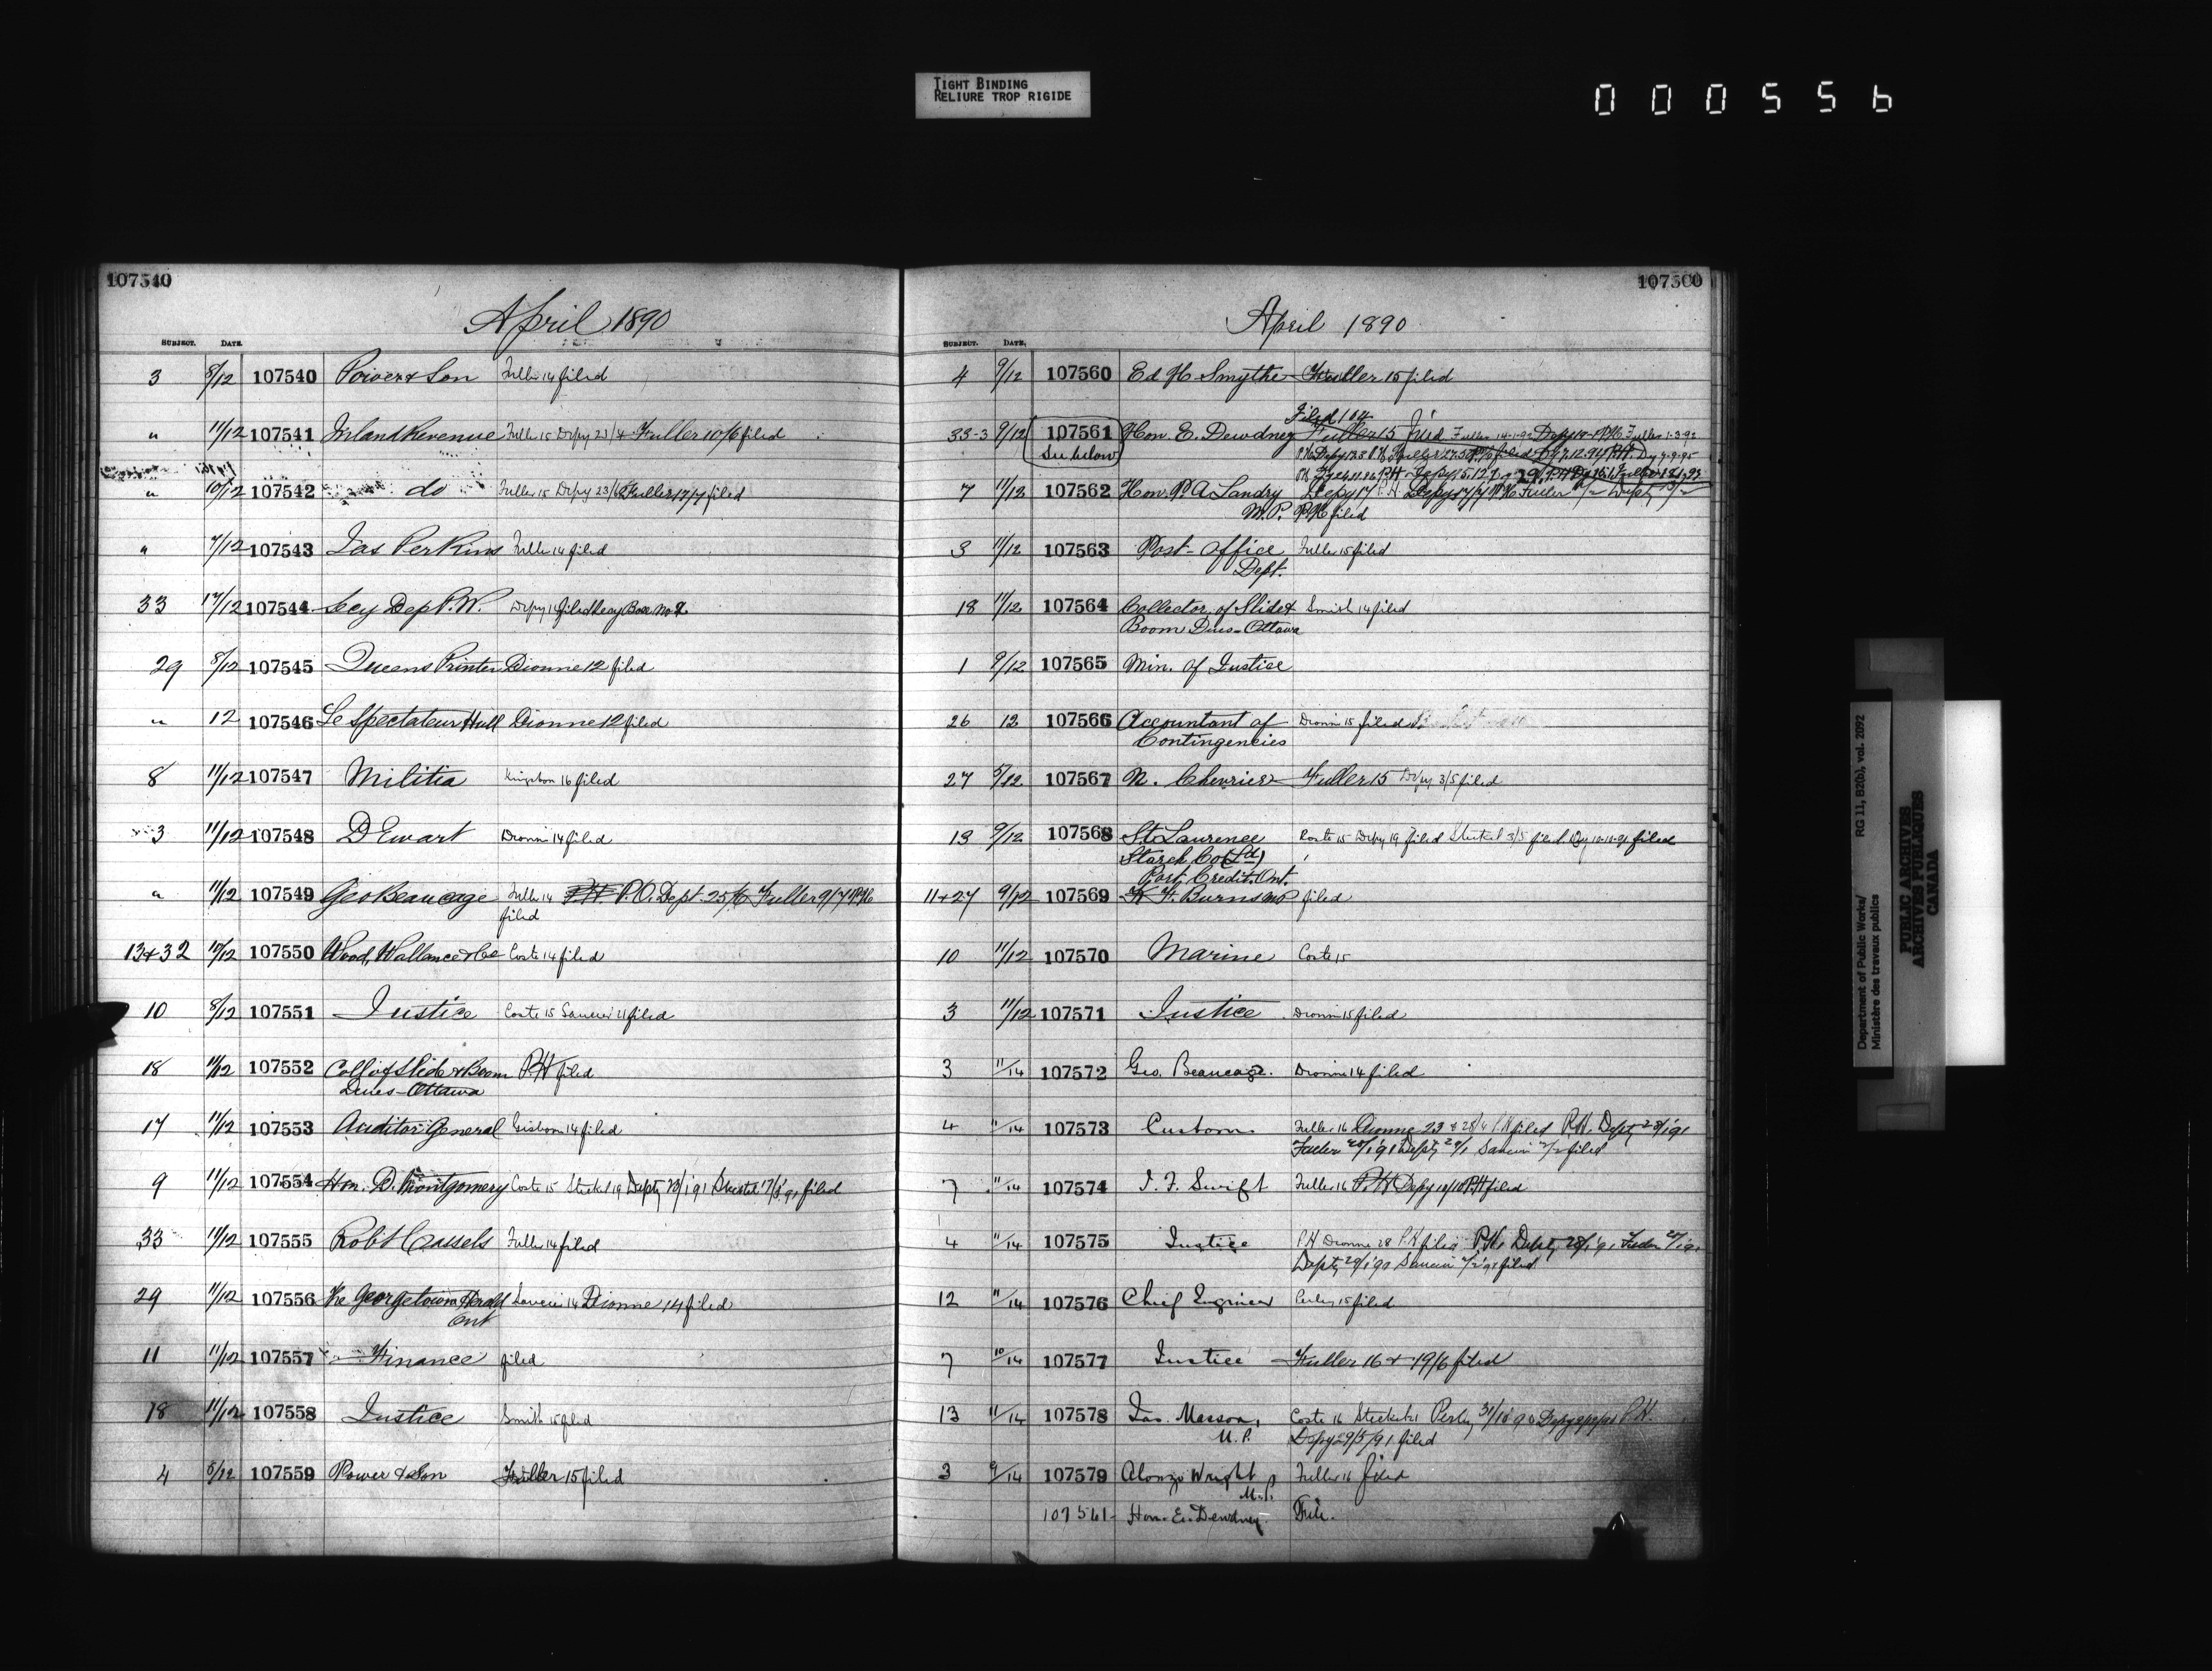 TIGHT BINDING
RELIURE TROP RIGIDE
000556
107540
April 1890
SUBJECT. DATE.
3 8/12 107540 Power & Son Fuller 14 filed
" 11/12 107541 Inland Revenue Fuller 15 Depy 23/4 Fuller 10/6 filed
" 10/12 107542 do Fuller 15 Depy 23/6 Fuller 17/7 filed
" 7/12 107543 Jas Perkins Fuller 14 filed
33 12/12 107544 Secy Dep P.W. Depy 14 filed Secy Box No 2
29 8/12 107545 Queens Printer Dionne 12 filed
" 12 107546 Le Spectateur Hull Dionne 12 filed
8 11/12 107547 Militia Kingston 16 filed
3 11/12 107548 D Ewart Dionne 14 filed
" 11/12 107549 Geo Beaucage Fuller 14 P.H P.O. Dept. 25/6 Fuller 9/7 P.H.
filed
13+32 10/12 107550 Wood, Wallance & Co Coste 14 filed
10 8/12 107551 Justice Coste 15 filed
18 11/12 107552 Coll of Slide & Boom P.H filed
Dues - Ottawa
17 11/12 107553 Auditor General Gisborn 14 filed
9 11/12 107554 Hon. D. Montgomery Coste 15 Steckel 19 Depty filed
33 11/12 107555 Robt Cassels Fuller 14 filed
29 11/12 107556 The Georgetown Herald Dionne 14 filed
Ont
11 11/12 107557 Finance filed
18 11/12 107558 Justice Smith 15 filed
4 8/12 107559 Power & Son Fuller 15 filed
107560
April 1890
SUBJECT. DATE.
4 9/12 107560 Ed H Smythe Fuller 15 filed
33-3 9/12 107561 Hon. E. Dewdney Fuller 15 filed
See below
7 11/12 107562 Hon. P. A Landry Depy 17
M.P. P.H. filed
3 11/12 107563 Post-Office Fuller 15 filed
Dept.
18 11/12 107564 Collector of Slide & Smith 14 filed
Boom Dues - Ottawa
1 9/12 107565 Min. of Justice
26 12 107566 Accountant of Dionne 15 filed
Contingencies
27 5/12 107567 N. Chevrier Fuller 15 Depy 3/5 filed
13 9/12 107568 St. Laurence Coste 15 Depy 19 filed Steckel 3/5 filed filed
Starch Co (Ltd)
Port Credit. Ont.
11+27 9/12 107569 K F. Burns MP filed
10 11/12 107570 Marine Coste 15
3 11/12 107571 Justice Dionne 15 filed
3 11/14 107572 Geo. Beaucage. Dionne 14 filed
4 11/14 107573 Customs Fuller 16 Dionne 23 P.H filed P.H. Depty
filed
7 11/14 107574 J. F. Swift Fuller 16 P.H Depy 10/10 P.H filed
4 11/14 107575 Justice P.H Dionne 28 P.H filed P.H. Depty
filed
12 11/14 107576 Chief Engineer Perley 15 filed
7 10/14 107577 Justice Fuller 16 & 19/6 filed
13 11/14 107578 Jas. Masson, Coste 16 Steckel 21 Perley P.H.
M.P. Depy 29/5/91 filed
3 9/14 107579 Alonzo Wright Fuller 16 filed
M.P.
107561 - Hon. E. Dewdney. File.
Department of Public Works/
Ministère des travaux publics
RG 11, B2(b), vol. 2092
PUBLIC ARCHIVES
ARCHIVES PUBLIQUES
CANADA